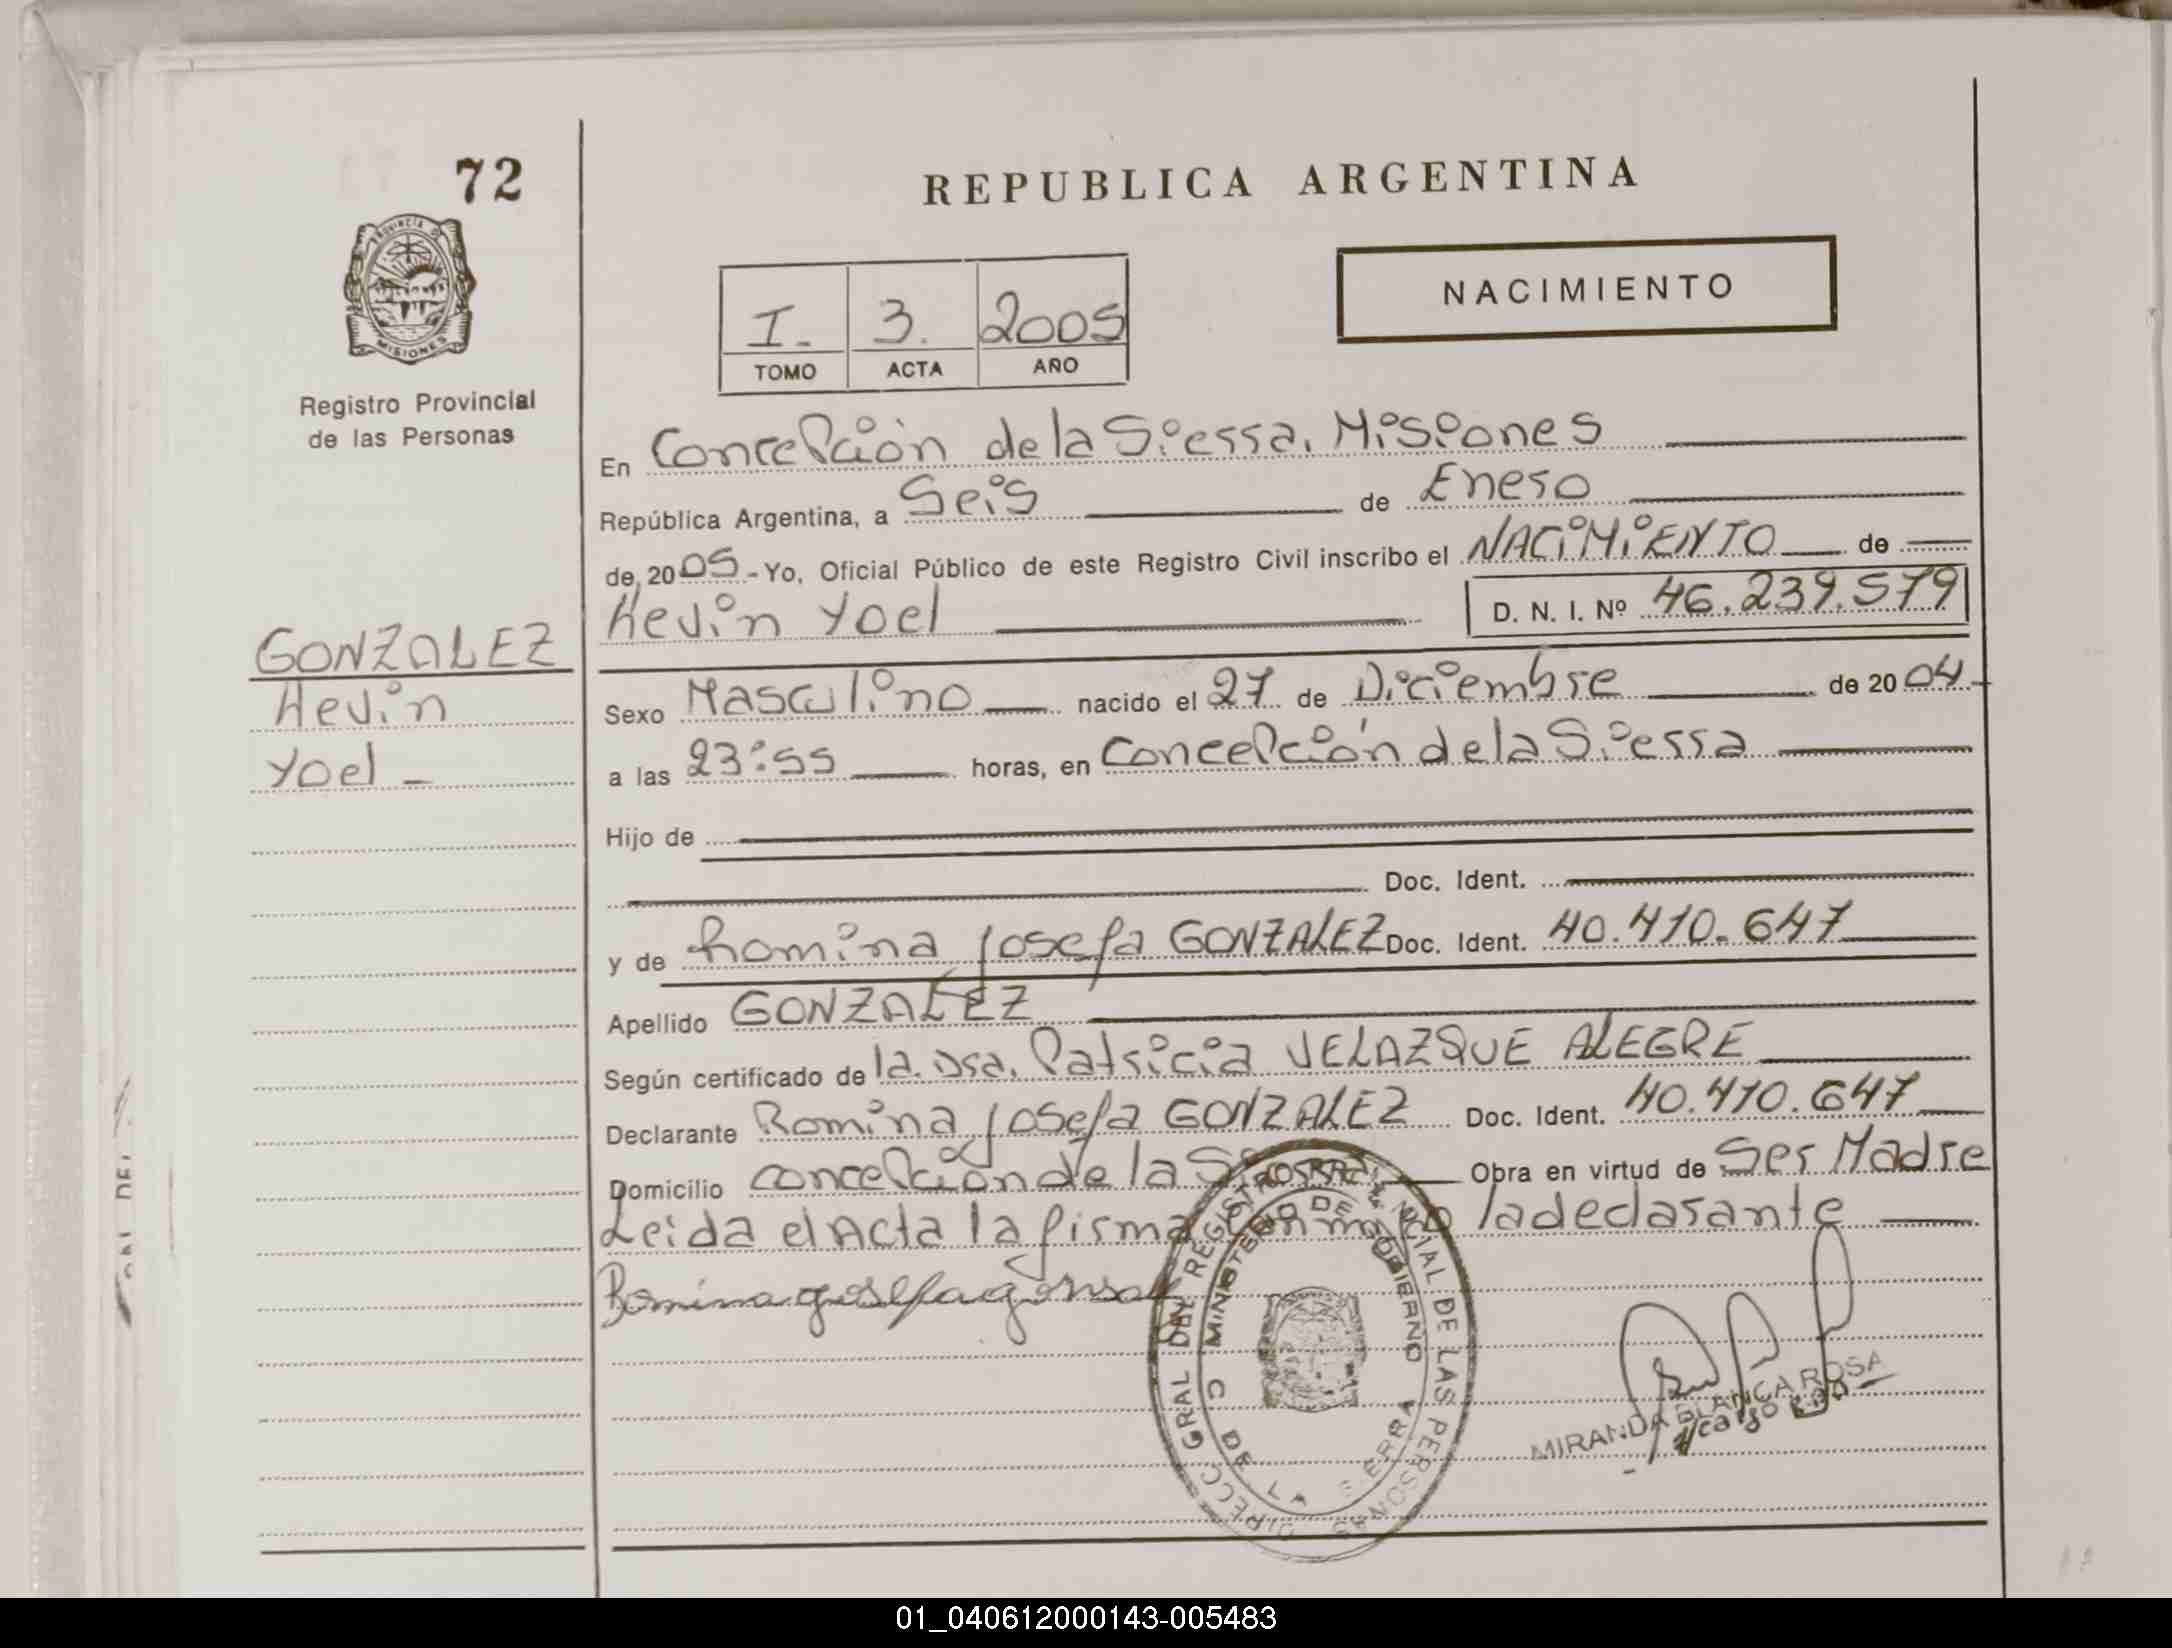 72
REPUBLICA ARGENTINA
PROVINCIA DE
MISIONES
NACIMIENTO
I. 3. 2005
TOMO ACTA AÑO
Registro Provincial
de las Personas
En Concepción de la Sierra, Misiones
República Argentina, a Seis de Enero
de 2005 - Yo, Oficial Público de este Registro Civil inscribo el NACIMIENTO de
Kevin Yoel D. N. I. Nº 46.239.579
GONZALEZ
Kevin
Yoel -
Sexo Masculino nacido el 27 de Diciembre de 2004
a las 23:55 horas, en Concepción de la Sierra
Hijo de
Doc. Ident.
y de Romina Josefa GONZALEZ Doc. Ident. 40.410.647
Apellido GONZALEZ
Según certificado de la. Dra. Patricia VELAZQUE ALEGRE
Declarante Romina Josefa GONZALEZ Doc. Ident. 40.410.647
Domicilio Concepción de la Sierra Obra en virtud de Ser Madre
Leida el Acta la firma conmigo la declarante
Romina josefa gonsal
DIRECC GRAL DEL REGISTRO PROVINCIAL DE LAS PERSONAS
MINISTERIO DE GOBIERNO
C DE LA SIERRA
MIRANDA BLANCA ROSA
01_040612000143-005483